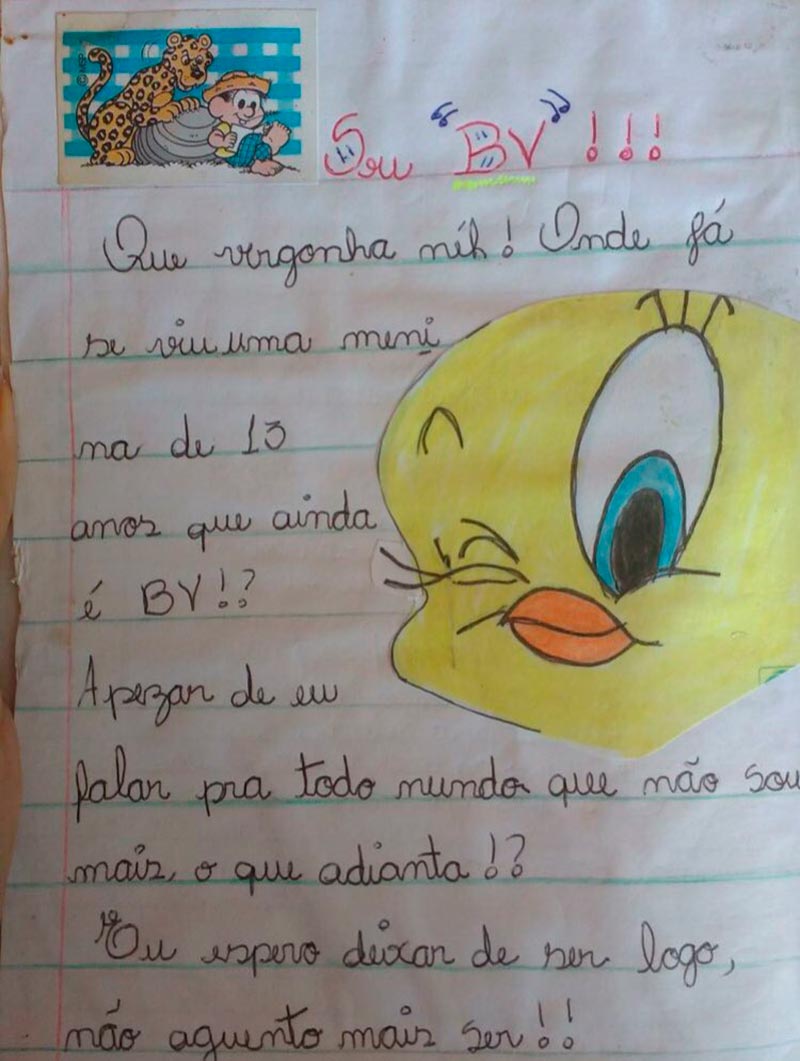 © MSP
Sou "BV"!!!
Que vergonha néh! Onde já
se viu uma meni
na de 13
anos que ainda
é BV!?
Apezar de eu
falar pra todo mundo que não sou
mais, o que adianta!?
Eu espero deixar de ser logo,
não aguento mais ser!!